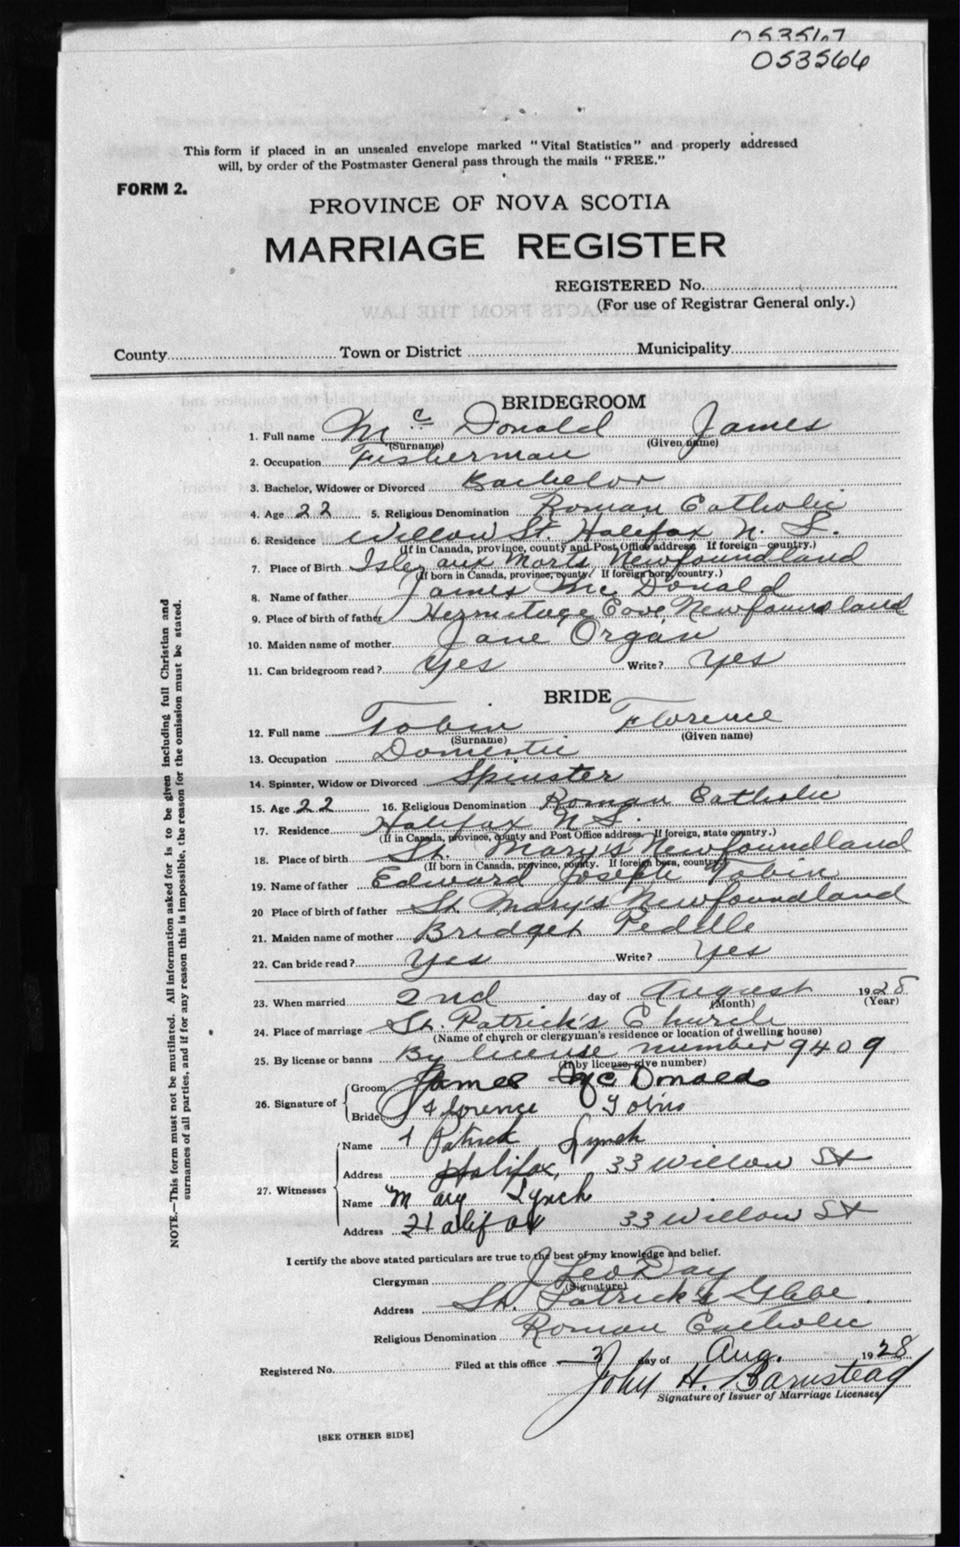 053567
053566
This form if placed in an unsealed envelope marked "Vital Statistics" and properly addressed
will, by order of the Postmaster General pass through the mails "FREE."
FORM 2.
PROVINCE OF NOVA SCOTIA
MARRIAGE REGISTER
REGISTERED No.
(For use of Registrar General only.)
County Town or District Municipality
BRIDEGROOM
1. Full name Mc Donald James
(Surname) (Given name)
2. Occupation Fisherman
3. Bachelor, Widower or Divorced Bachelor
4. Age 22 5. Religious Denomination Roman Catholic
6. Residence Willow St. Halifax N. S.
(If in Canada, province, county and Post Office address. If foreign—country.)
7. Place of Birth Isle aux Morts Newfoundland
(If born in Canada, province, county. If foreign born, country.)
8. Name of father James Mc Donald
9. Place of birth of father Hermitage Cove, Newfoundland
10. Maiden name of mother Jane Organ
11. Can bridegroom read? Yes Write? Yes
BRIDE
12. Full name Tobin Florence
(Surname) (Given name)
13. Occupation Domestic
14. Spinster, Widow or Divorced Spinster
15. Age 22 16. Religious Denomination Roman Catholic
17. Residence Halifax N S.
(If in Canada, province, county and Post Office address. If foreign, state country.)
18. Place of birth St. Mary's Newfoundland
(If born in Canada, province, county. If foreign born, country.)
19. Name of father Edward Joseph Tobin
20 Place of birth of father St. Mary's Newfoundland
21. Maiden name of mother Bridget Peddle
22. Can bride read? Yes Write? Yes
23. When married 2nd day of August 1928
(Month) (Year)
24. Place of marriage St. Patrick's Church
(Name of church or clergyman's residence or location of dwelling house)
25. By license or banns By license number 9409
(If by license, give number)
26. Signature of
Groom James McDonald
Bride Florence Tobin
27. Witnesses
Name Patrick Lynch
Address Halifax, 33 Willow St
Name Mary Lynch
Address Halifax 33 Willow St
I certify the above stated particulars are true to the best of my knowledge and belief.
Clergyman J Leo Day
(Signature)
Address St. Patrick's Glebe.
Religious Denomination Roman Catholic
Registered No. Filed at this office 3 day of Aug. 1928
John H. Barnstead
Signature of Issuer of Marriage Licenses
[SEE OTHER SIDE]
NOTE.—This form must not be mutilated. All information asked for is to be given including full Christian and
surnames of all parties, and if for any reason this is impossible, the reason for the omission must be stated.